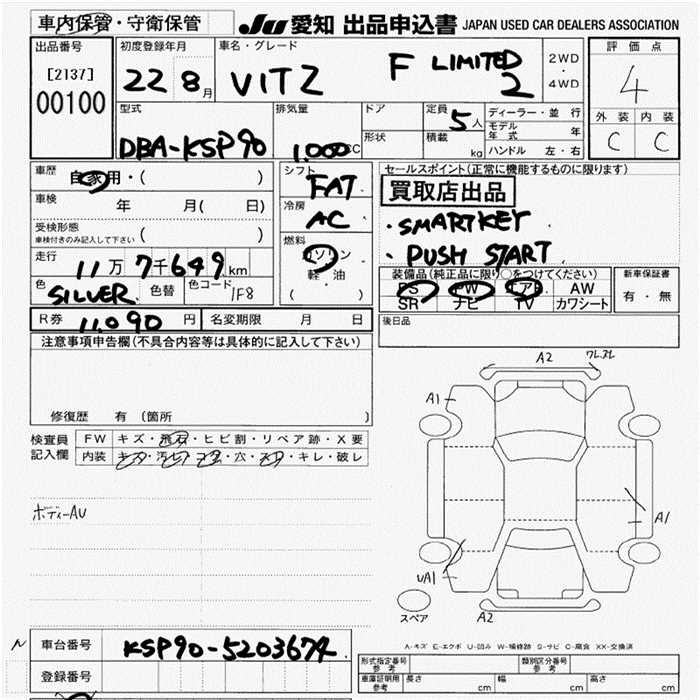 車内保管・守衛保管 JU 愛知 出品申込書 JAPAN USED CAR DEALERS ASSOCIATION
出品番号 初度登録年月 車名・グレード 2WD・4WD 評価点
[2137] 22 8月 VITZ F LIMITED 2 4
00100
型式 排気量 ドア 定員 5人 ディーラー・並行 外装 内装
DBA-KSP90 1.000CC 形状 積載 kg モデル年式 年 C C
ハンドル 左・右
車歴 自家用・( ) シフト FAT セールスポイント(正常に機能するものに限ります)
車検 年 月( 日) 冷房 AC 買取店出品
受検形態 ( ) ・SMARTKEY
車検付きのみ記入して下さい
燃料 ガソリン ・PUSH START
走行 11万7千649km 軽・油
( ・ )
色 SILVER 色替 色コード 1F8
装備品(純正品に限り○をつけてください) 新車保証書
PS PW エアB AW 有・無
SR ナビ TV カワシート
R券 11,090円 名変期限 月 日 後日品
注意事項申告欄(不具合内容等は具体的に記入して下さい)
修復歴 有 (箇所 )
検査員記入欄 FW キズ・飛石・ヒビ割・リペア跡・X要
内装 キズ・汚レ・コゲ・穴・スリ・キレ・破レ
ボディーAU
A2
A1
A1
UA1
A2
スペア
A-キズ E-エクボ U-凹み W-補修跡 S-サビ C-腐食 XX-交換済
N 車台番号 KSP90-5203674
登録番号
形式指定番号 参考 類別区分番号 参考
車庫証明用 参考 長さ cm 幅 cm 高さ cm